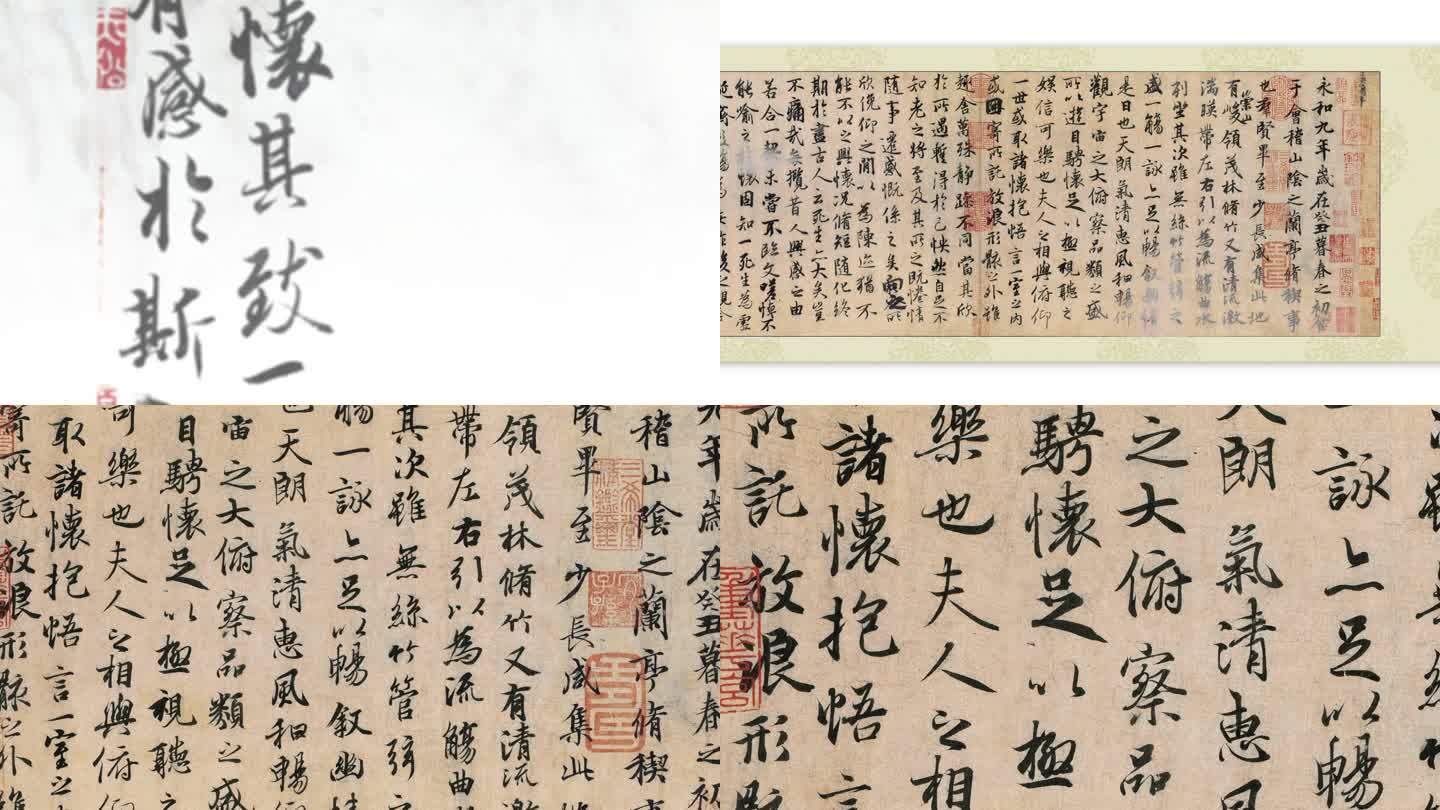 懷其致一
有感於斯
永和九年歲在癸丑暮春之初會
于會稽山陰之蘭亭脩稧事
也羣賢畢至少長咸集此地
有崇山峻領茂林脩竹又有清流激
湍暎帶左右引以為流觴曲水
列坐其次雖無絲竹管弦之
盛一觴一詠亦足以暢敘幽情
是日也天朗氣清惠風和暢仰
觀宇宙之大俯察品類之盛
所以遊目騁懷足以極視聽之
娛信可樂也夫人之相與俯仰
一世或取諸懷抱悟言一室之內
或因寄所託放浪形骸之外雖
趣舍萬殊靜躁不同當其欣
於所遇暫得於己快然自足不
知老之將至及其所之既惓情
隨事遷感慨係之矣向之所
欣俛仰之閒以為陳迹猶不
能不以之興懷況脩短隨化終
期於盡古人云死生亦大矣豈
不痛哉每攬昔人興感之由
若合一契未嘗不臨文嗟悼不
能喻之於懷固知一死生為虛
年歲在癸丑暮春之初
稽山陰之蘭亭脩稧事
賢畢至少長咸集此
領茂林脩竹又有清流激
帶左右引以為流觴曲
其次雖無絲竹管弦之
觴一詠亦足以暢敘幽情
也天朗氣清惠風和暢仰
宙之大俯察品類之盛
目騁懷足以極視聽之
可樂也夫人之相與俯仰
取諸懷抱悟言一室之
寄所託放浪形骸之外雖
詠亦足以暢
朗氣清惠風
之大俯察品
騁懷足以極
樂也夫人之相
諸懷抱悟言
所託放浪形骸